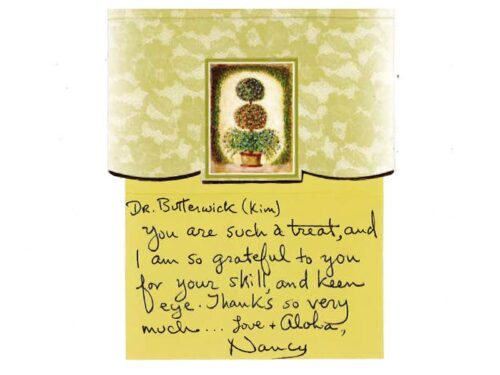 Dr. Butterwick (Kim)
You are such a treat, and
I am so grateful to you
for your skill, and keen
eye. Thanks so very
much... Love + Aloha,
Nancy